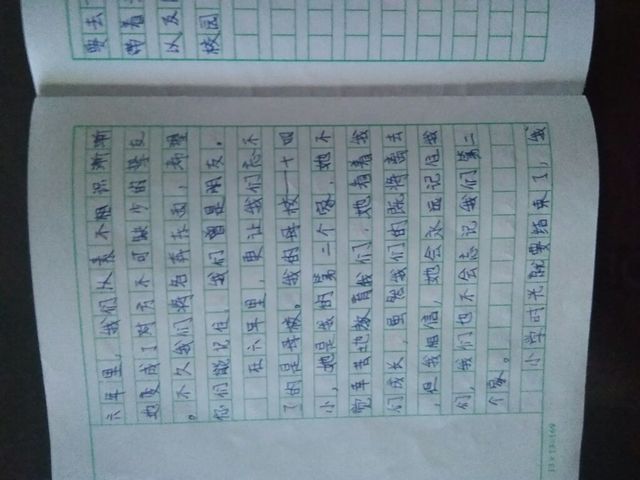 六年里，我们从素不相识渐渐
地变成了对方不可缺少的挚友
。不久我们将各奔东西，希望
你们能记住，我们曾是朋友。
在六年里，更让我们忘不
了的是母校。我的母校一十四
小，她是我的第二个家，她不
觉辛苦地教育我们，她看着我
们成长，虽然我们的既将离去
，但我相信，她会永远记住我
们，我们也不会忘记我们第二
个家。
小学时光就要结束了，我
13×13=169
要去
带着
以及
校园